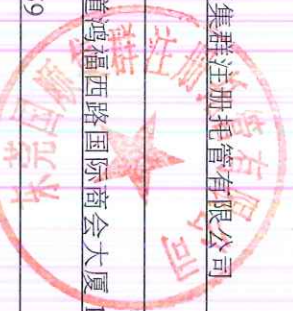 集群注册托管有限公司
道鸿福西路国际商会大厦1
69
东莞国顺集群注册托管有限公司